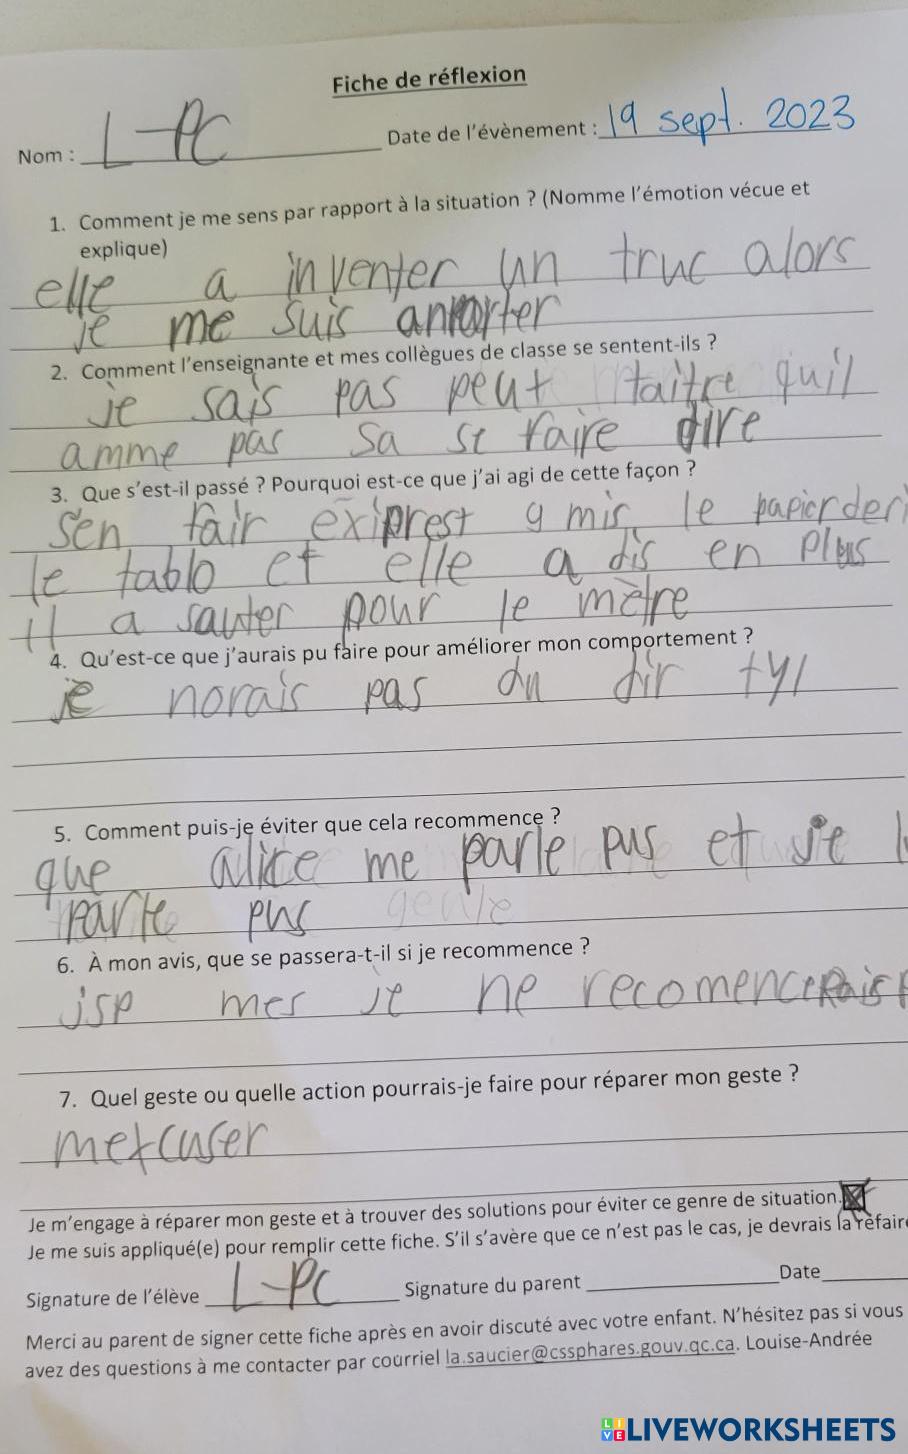 Fiche de réflexion
Nom : L-PC Date de l'évènement : 19 sept. 2023
1. Comment je me sens par rapport à la situation ? (Nomme l'émotion vécue et
explique)
elle a inventer un truc alors
je me suis anporter
2. Comment l'enseignante et mes collègues de classe se sentent-ils ?
je sais pas peut taitre quil
amme pas sa se faire dire
3. Que s'est-il passé ? Pourquoi est-ce que j'ai agi de cette façon ?
sen fair exiprest y mis le papier deri
le tablo et elle a dis en plus
il a sauter pour le mètre
4. Qu'est-ce que j'aurais pu faire pour améliorer mon comportement ?
je norais pas du dir
5. Comment puis-je éviter que cela recommence ?
que alice me parle pus et je
parle pus
6. À mon avis, que se passera-t-il si je recommence ?
jsp mes je ne recomencerais
7. Quel geste ou quelle action pourrais-je faire pour réparer mon geste ?
mexcuser
Je m'engage à réparer mon geste et à trouver des solutions pour éviter ce genre de situation.
Je me suis appliqué(e) pour remplir cette fiche. S'il s'avère que ce n'est pas le cas, je devrais la refaire
Signature de l'élève L-PC Signature du parent Date
Merci au parent de signer cette fiche après en avoir discuté avec votre enfant. N'hésitez pas si vous
avez des questions à me contacter par courriel la.saucier@cssphares.gouv.qc.ca. Louise-Andrée
LIVE LIVEWORKSHEETS